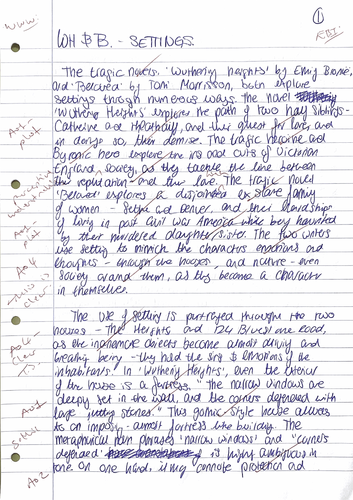 WH & B. - SETTINGS.
The tragic novels. 'Wuthering heights' by Emily Bronte,
and 'Beloved' by Toni Morrisson, both explore
settings through numerous ways. The novel
'Wuthering Heights' explores the path of two half siblings -
Catherine and Heathcliff, and their quest for love, and
in doing so, their demise. The tragic heroine and
Byronic hero explore the ins and outs of Victorian
England, society, as they the line between
the reputation and true love. The tragic novel
'Beloved' explores a disjointed ex slave family
of women - Sethe and Denver, and their hardships
of living in post Civil War America while being haunted
by their murdered daughter/sister. The two writers
use setting to mimick the characters emotions and
thoughts - through the houses, and nature - even
society around them, as they become a character
in themselves.
The use of setting is portrayed through the two
houses - The Heights and 124 Bluestone Road,
as the inanimate objects become almost a living and
breathing being - they hold the & emotions of the
inhabitants. In 'Wuthering Heights', even the exterior
of the house is a fortress. "The narrow windows are
deeply set in the wall, and the corners defended with
large jutting stones." This gothic style house alludes
to an imposing almost fortress like building. The
metaphorical phrases 'narrow windows' and "corners
defended' is highly ambiguous in
tone. On one hand, it may connote protection and
www.
Ao1 -
Ao4
Ao4 -
clear
Ao1
Ao2